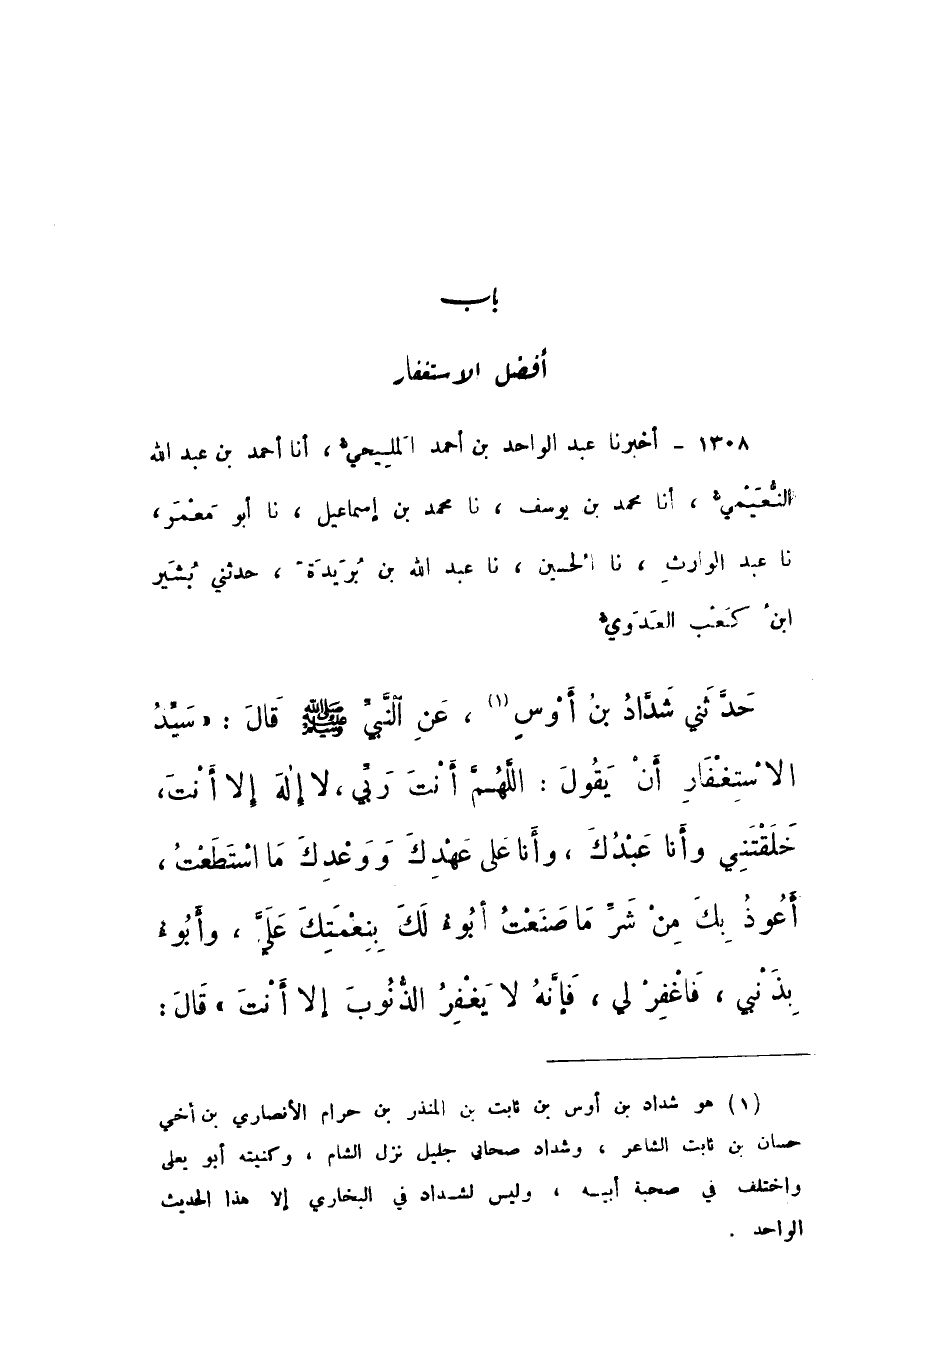 باب
أفضل الاستغفار
١٣٠٨ - أخبرنا عبد الواحد بن أحمد المَلِيحيُّ ، أنا أحمد بن عبد الله
النُّعَيْميُّ ، أنا محمد بن يوسف ، نا محمد بن إسماعيل ، نا أبو مَعْمَر ،
نا عبد الوارثِ ، نا الحُسين ، نا عبد الله بن بُرَيدَةَ ، حدثني بُشَير
ابنُ كَعْب العَدَويُّ
حَدَّثَني شَدَّادُ بنُ أَوْسٍ (١) ، عَنِ النَّبيِّ ﷺ قَالَ : « سَيِّدُ
الاسْتِغْفَارِ أَنْ يَقُولَ : اللَّهُمَّ أَنْتَ رَبِّي ، لا إِلٰهَ إِلا أَنْتَ ،
خَلَقْتَنِي وأَنا عَبْدُكَ ، وأَنا عَلى عَهْدِكَ وَوَعْدِكَ مَا اسْتَطَعْتُ ،
أَعُوذُ بِكَ مِنْ شَرِّ مَا صَنَعْتُ أَبُوءُ لَكَ بِنِعْمَتِكَ عَلَيَّ ، وأَبُوءُ
بِذَنْبي ، فَاغْفِرْ لي ، فَإِنَّهُ لا يَغْفِرُ الذُّنُوبَ إلا أَنْتَ » قَالَ :
(١) هو شداد بن أوس بن ثابت بن المنذر بن حرام الأنصاري بن أخي
حسان بن ثابت الشاعر ، وشداد صحابي جليل نزل الشام ، وكنيته أبو يعلى
واختلف في صحبة أبيـه ، وليس لشـداد في البخاري إلا هذا الحديث
الواحد .